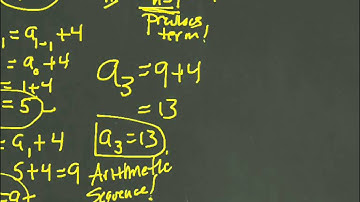 n-1
previous
term!
1 = a1-1 + 4
= a0 + 4
= 1 + 4
= 5
a3 = 9 + 4
= 13
= a1 + 4
5 + 4 = 9
a3 = 13
Arithmetic
Sequence!